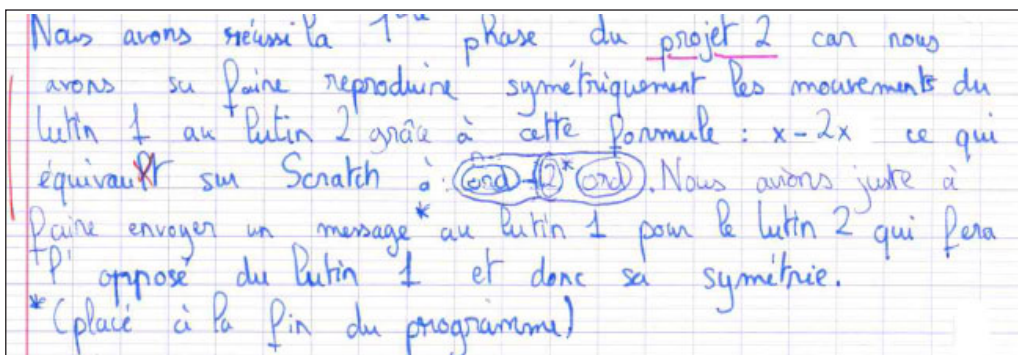 Nous avons réussi la 1ère phase du projet 2 car nous
avons su faire reproduire symétriquement les mouvements du
lutin 1 au lutin 2 grâce à cette formule : x - 2x ce qui
équivaut sur Scratch à : (ord - (2 * ord)). Nous avions juste à
faire envoyer un message * au lutin 1 pour le lutin 2 qui fera
l'opposé du lutin 1 et donc sa symétrie.
* (placé à la fin du programme)